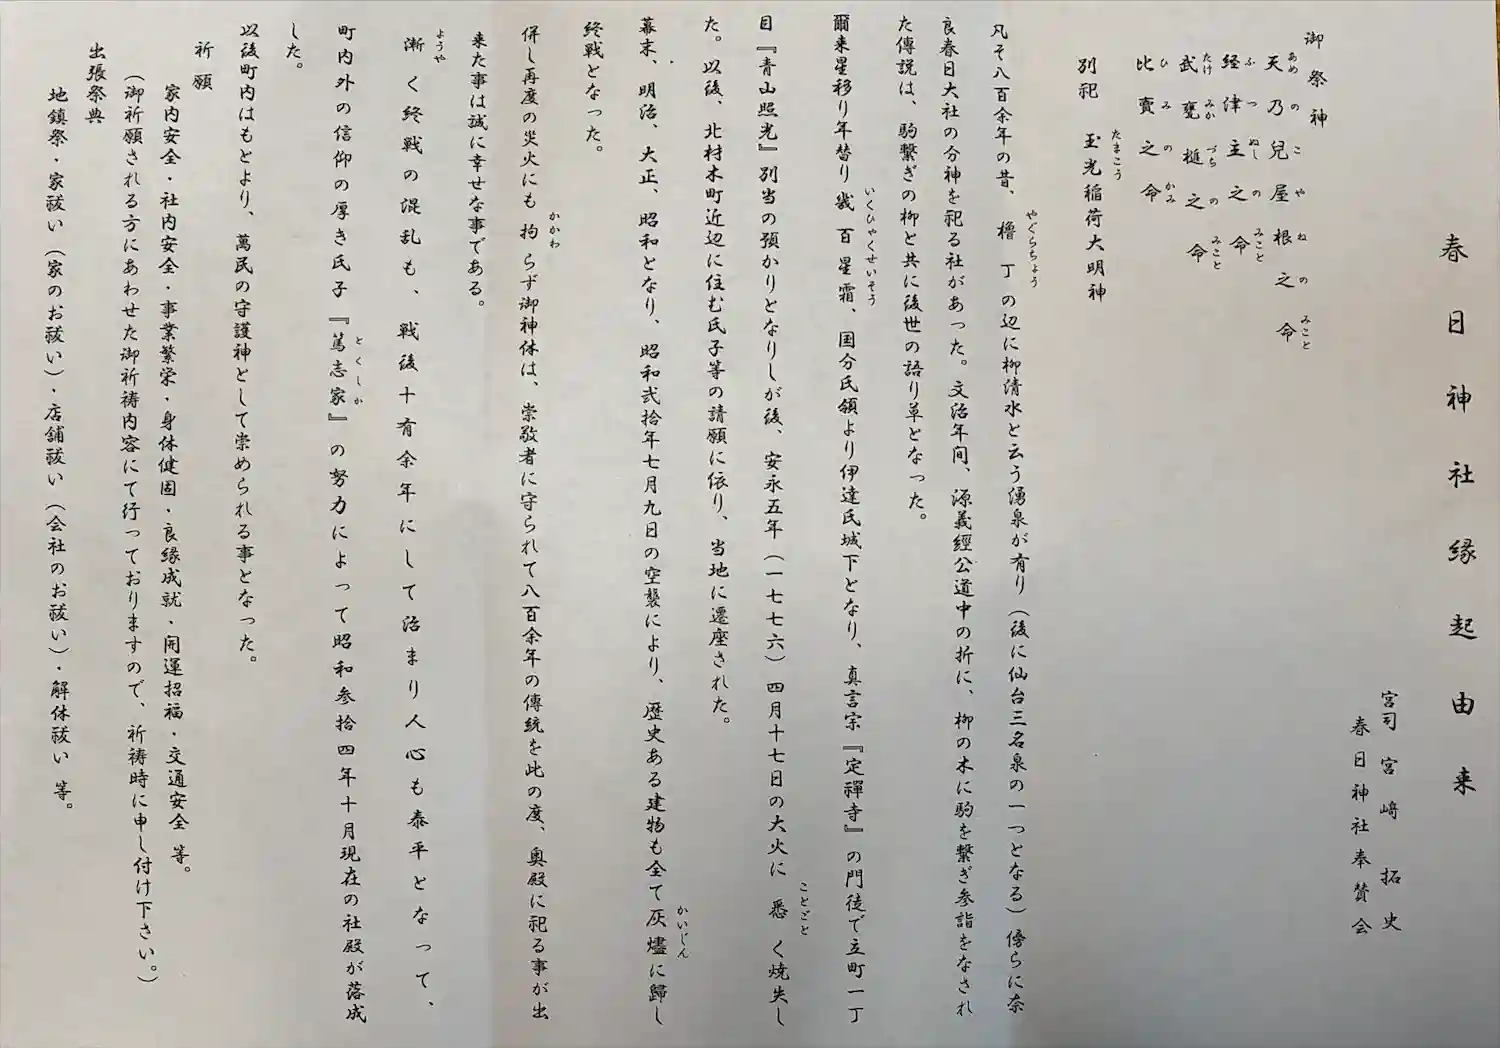 春日神社縁起由来
宮司 宮﨑 拓史
春日神社奉賛会
御祭神
天乃兒屋根之命
あめのこやねのみこと
経津主之命
ふつぬしのみこと
武甕槌之命
たけみかづちのみこと
比賣之命
ひみのかみ
別祀 玉光稲荷大明神
たまこう
凡そ八百余年の昔、櫓丁の辺に柳清水と云う湧泉が有り(後に仙台三名泉の一つとなる)傍らに奈
やぐらちょう
良春日大社の分神を祀る社があった。文治年间、源義經公道中の折に、柳の木に駒を繋ぎ参詣をなされ
た傳説は、駒繋ぎの柳と共に後世の語り草となった。
爾来星移り年替り幾百星霜、国分氏領より伊達氏城下となり、真言宗『定禪寺』の門徒で立町一丁
いくひゃくせいそう
目『青山照光』別当の預かりとなりしが後、安永五年(一七七六)四月十七日の大火に悉く焼失し
ことごと
た。以後、北材木町近辺に住む氏子等の請願に依り、当地に遷座された。
幕末、明治、大正、昭和となり、昭和弐拾年七月九日の空襲により、歴史ある建物も全て灰燼に歸し
かいじん
終戦となった。
併し再度の災火にも拘らず御神体は、崇敬者に守られて八百余年の傳統を此の度、奥殿に祀る事が出
かかわ
来た事は誠に幸せな事である。
漸く終戦の混乱も、戦後十有余年にして治まり人心も泰平となって、
ようや
町内外の信仰の厚き氏子『篤志家』の努力によって昭和参拾四年十月現在の社殿が落成
とくしか
した。
以後町内はもとより、萬民の守護神として崇められる事となった。
祈願
家内安全・社内安全・事業繁栄・身体健固・良縁成就・開運招福・交通安全 等。
(御祈願される方にあわせた御祈祷内容にて行っておりますので、祈祷時に申し付け下さい。)
出張祭典
地鎮祭・家祓い(家のお祓い)・店舗祓い(会社のお祓い)・解体祓い 等。